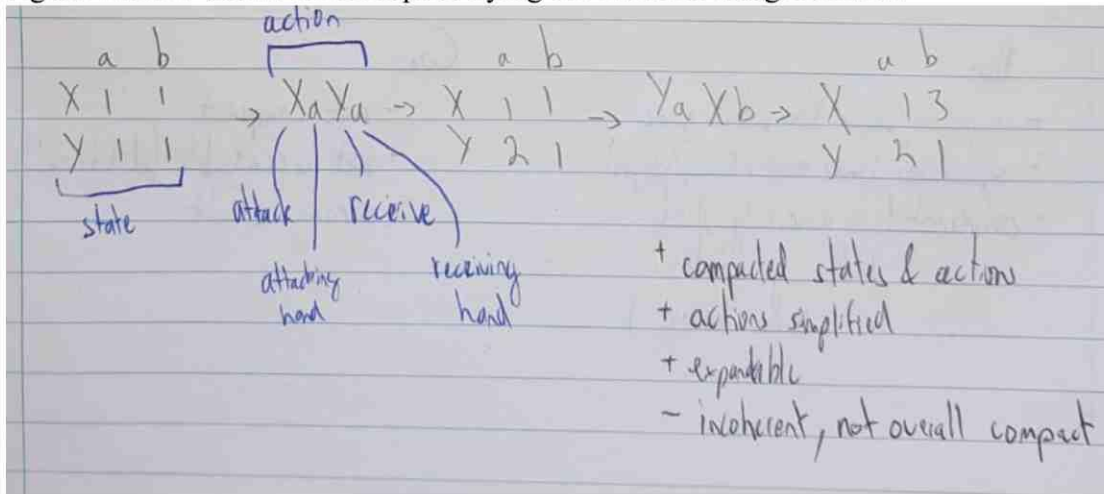 action
a b a b a b
X 1 1 → Xa Ya → X 1 1 → Ya Xb → X 1 3
Y 1 1 Y 2 1 Y 2 1
state attack receive
attacking hand receiving hand
+ compacted states & actions
+ actions simplified
+ expandable
- incoherent, not overall compact